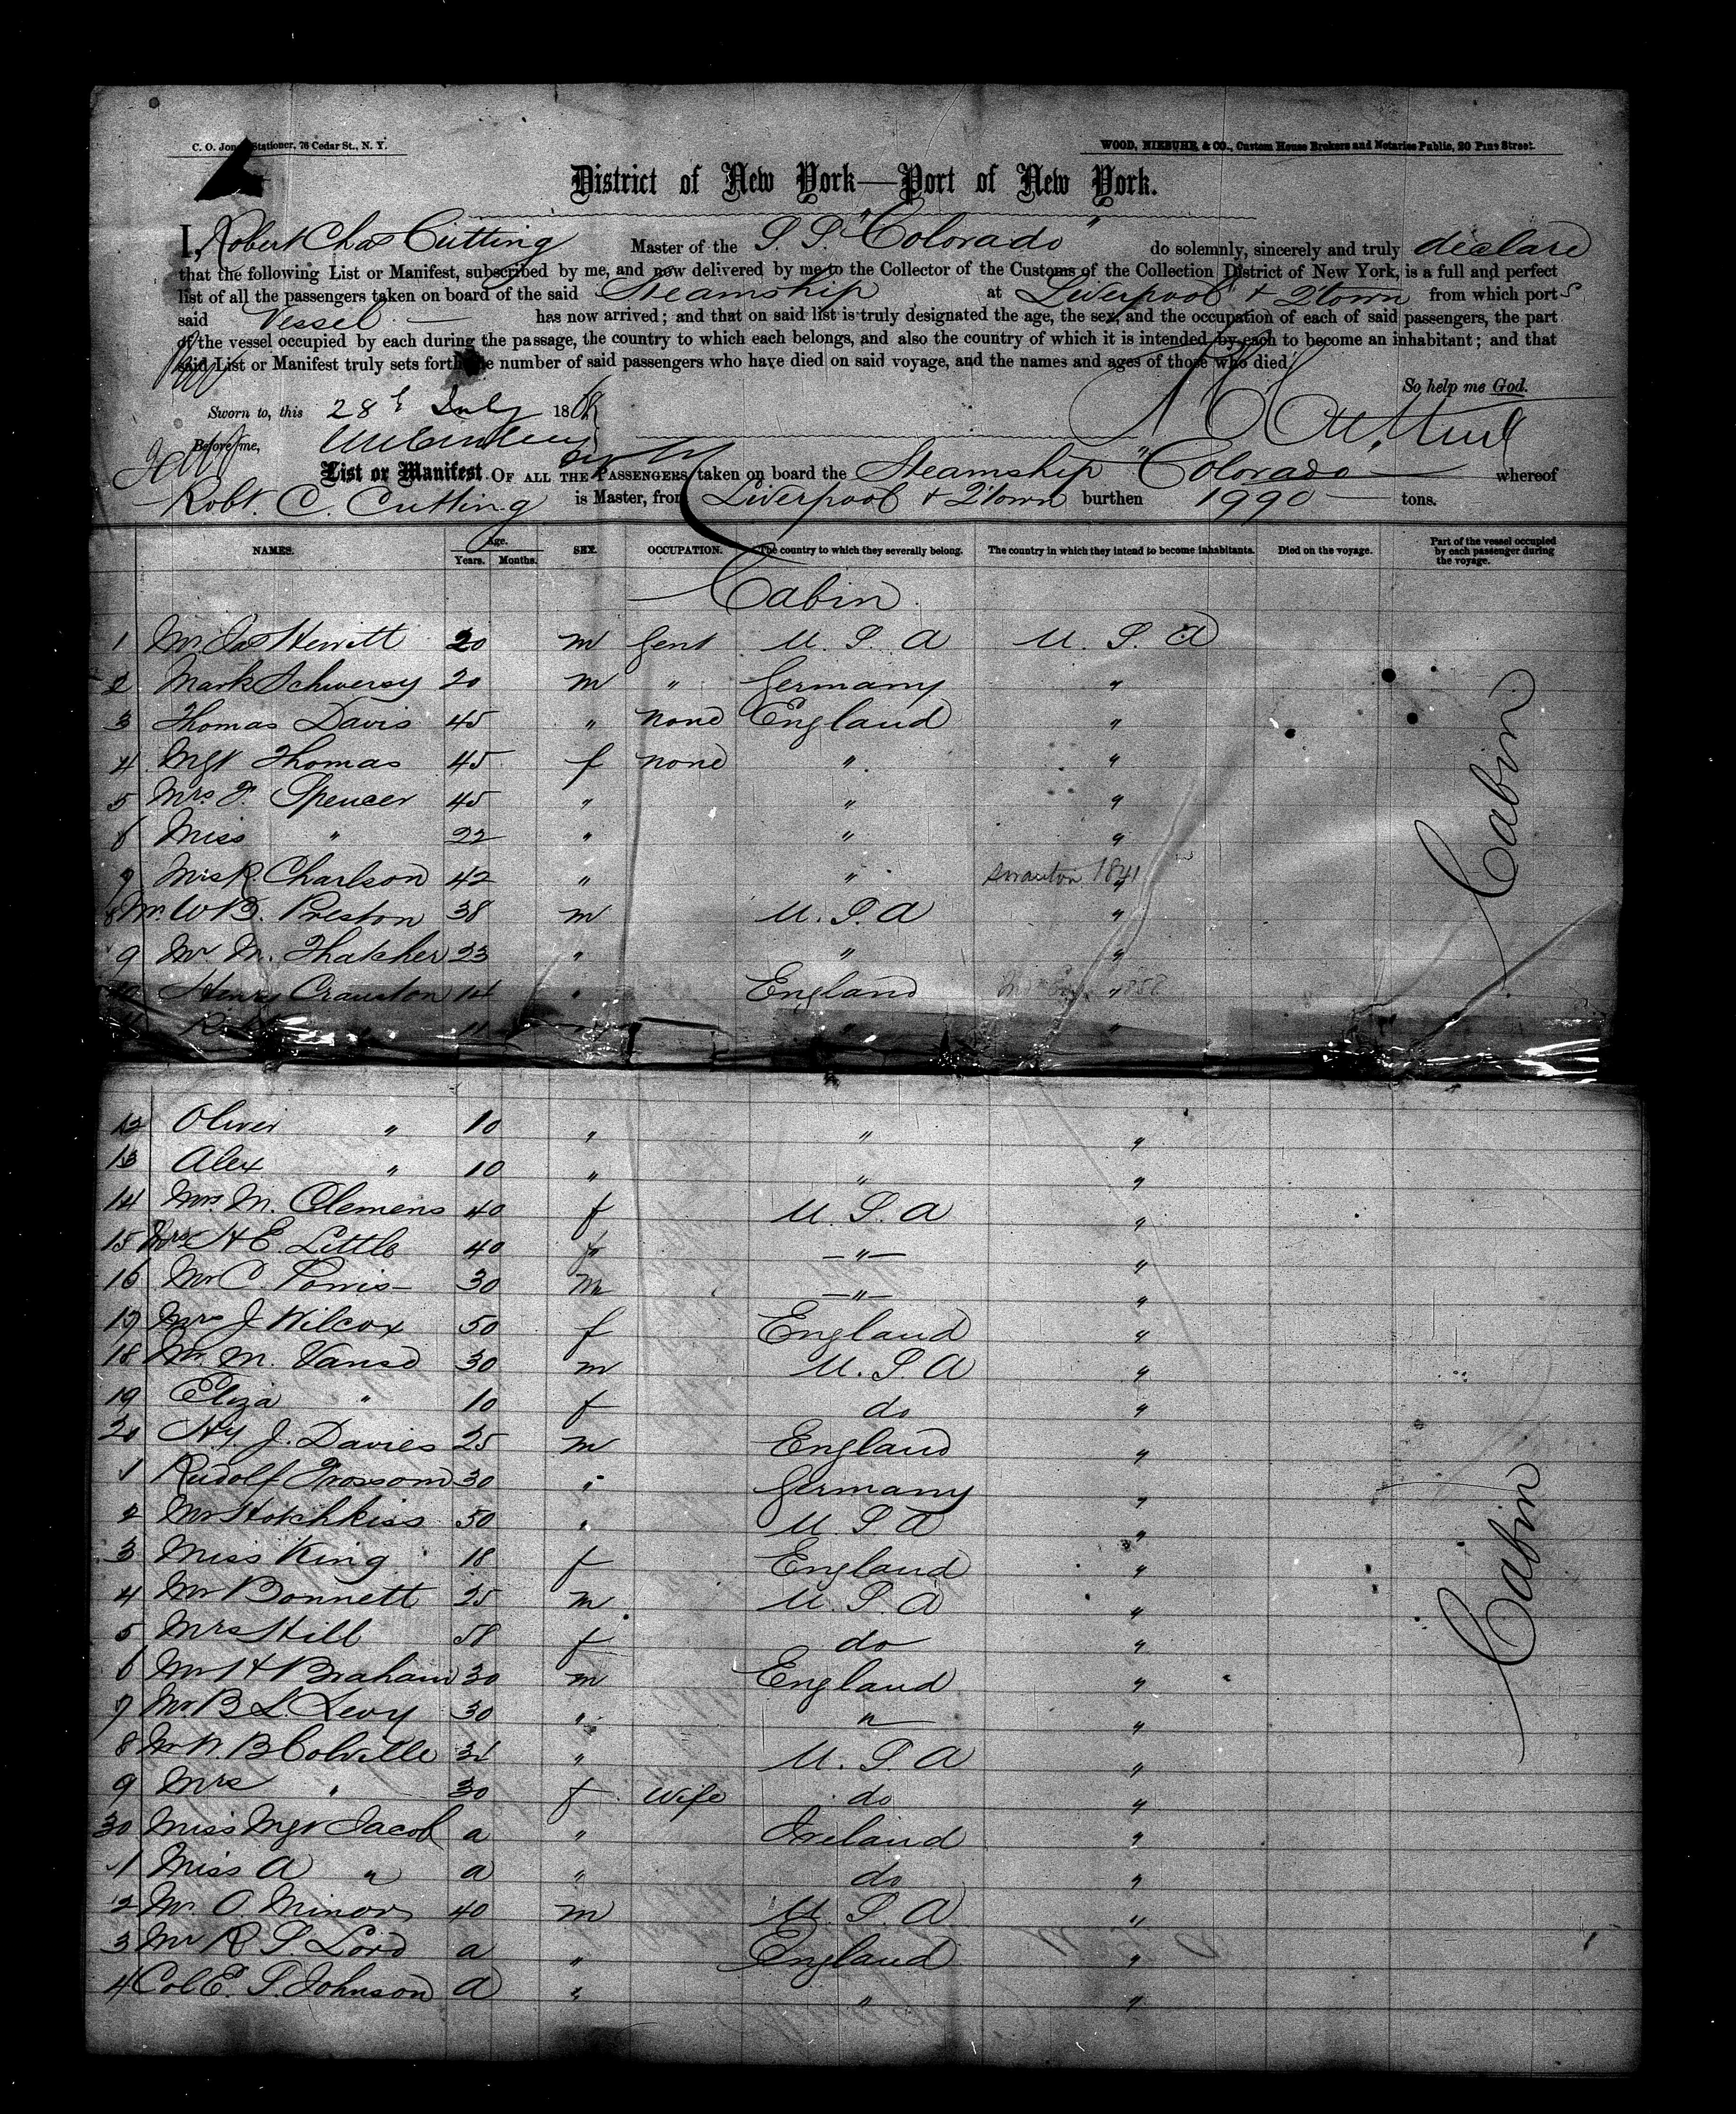 C. O. Jones, Stationer, 76 Cedar St., N. Y.
WOOD, NIEBUHR, & CO., Custom House Brokers and Notaries Public, 20 Pine Street.
District of New York—Port of New York.
I, Robert Chas Cutting Master of the S. S. "Colorado" do solemnly, sincerely and truly declare
that the following List or Manifest, subscribed by me, and now delivered by me to the Collector of the Customs of the Collection District of New York, is a full and perfect
list of all the passengers taken on board of the said Steamship at Liverpool & Q'town from which ports
said Vessel has now arrived; and that on said list is truly designated the age, the sex, and the occupation of each of said passengers, the part
of the vessel occupied by each during the passage, the country to which each belongs, and also the country of which it is intended by each to become an inhabitant; and that
said List or Manifest truly sets forth the number of said passengers who have died on said voyage, and the names and ages of those who died.
So help me God.
Sworn to, this 28th July 1868
Before me,
List or Manifest OF ALL THE PASSENGERS taken on board the Steamship "Colorado" whereof
Robt. C. Cutting is Master, from Liverpool & Q'town burthen 1990 tons.
NAMES. Age. Years. Months. SEX. OCCUPATION. The country to which they severally belong. The country in which they intend to become inhabitants. Died on the voyage. Part of the vessel occupied by each passenger during the voyage.
Cabin
1 Mr. Jas Hewitt 20 m Gent U. S. A U. S. A
2 Mark Schwersy 20 m " Germany "
3 Thomas Davis 45 " none England "
4 Mgt Thomas 45 f none " "
5 Mrs. F. Spencer 45 " " "
6 Miss " 22 " " "
7 Mrs R. Charlson 42 " " 1841 "
8 Mr. W B. Preston 38 m U. S. A "
9 Mr M. Thatcher 23 " " "
10 Henry Cranston 14 " England "
11 " 11 " " "
Cabin
12 Oliver " 10 " " "
13 Alex " 10 " " "
14 Mrs. M. Clemens 40 f U. S. A "
15 Mrs H E. Little 40 f —"— "
16 Mr C. Porris 30 m —"— "
17 Mrs J Wilcox 50 f England "
18 Mr. M. Vanse 30 m U. S. A "
19 Eliza " 10 f do "
20 Hy. J. Davies 25 m England "
1 Rudolf Frossom 30 " Germany "
2 Mr Hotchkiss 50 " U. S. A "
3 Miss King 18 f England "
4 Mr Bonnett 25 m U. S. A "
5 Mrs Hill 58 f do "
6 Mr H Braham 30 m England "
7 Mr. B L Levy 30 " " "
8 Mr W. B Colville 31 " U. S. A "
9 Mrs " 30 f Wife do "
30 Miss Mgt Jacob a " Ireland "
1 Miss A " a " do "
2 Mr. O Minor 40 m U. S. A "
3 Mr R S. Lord a " England "
4 Col E. S. Johnson a " " "
Cabin